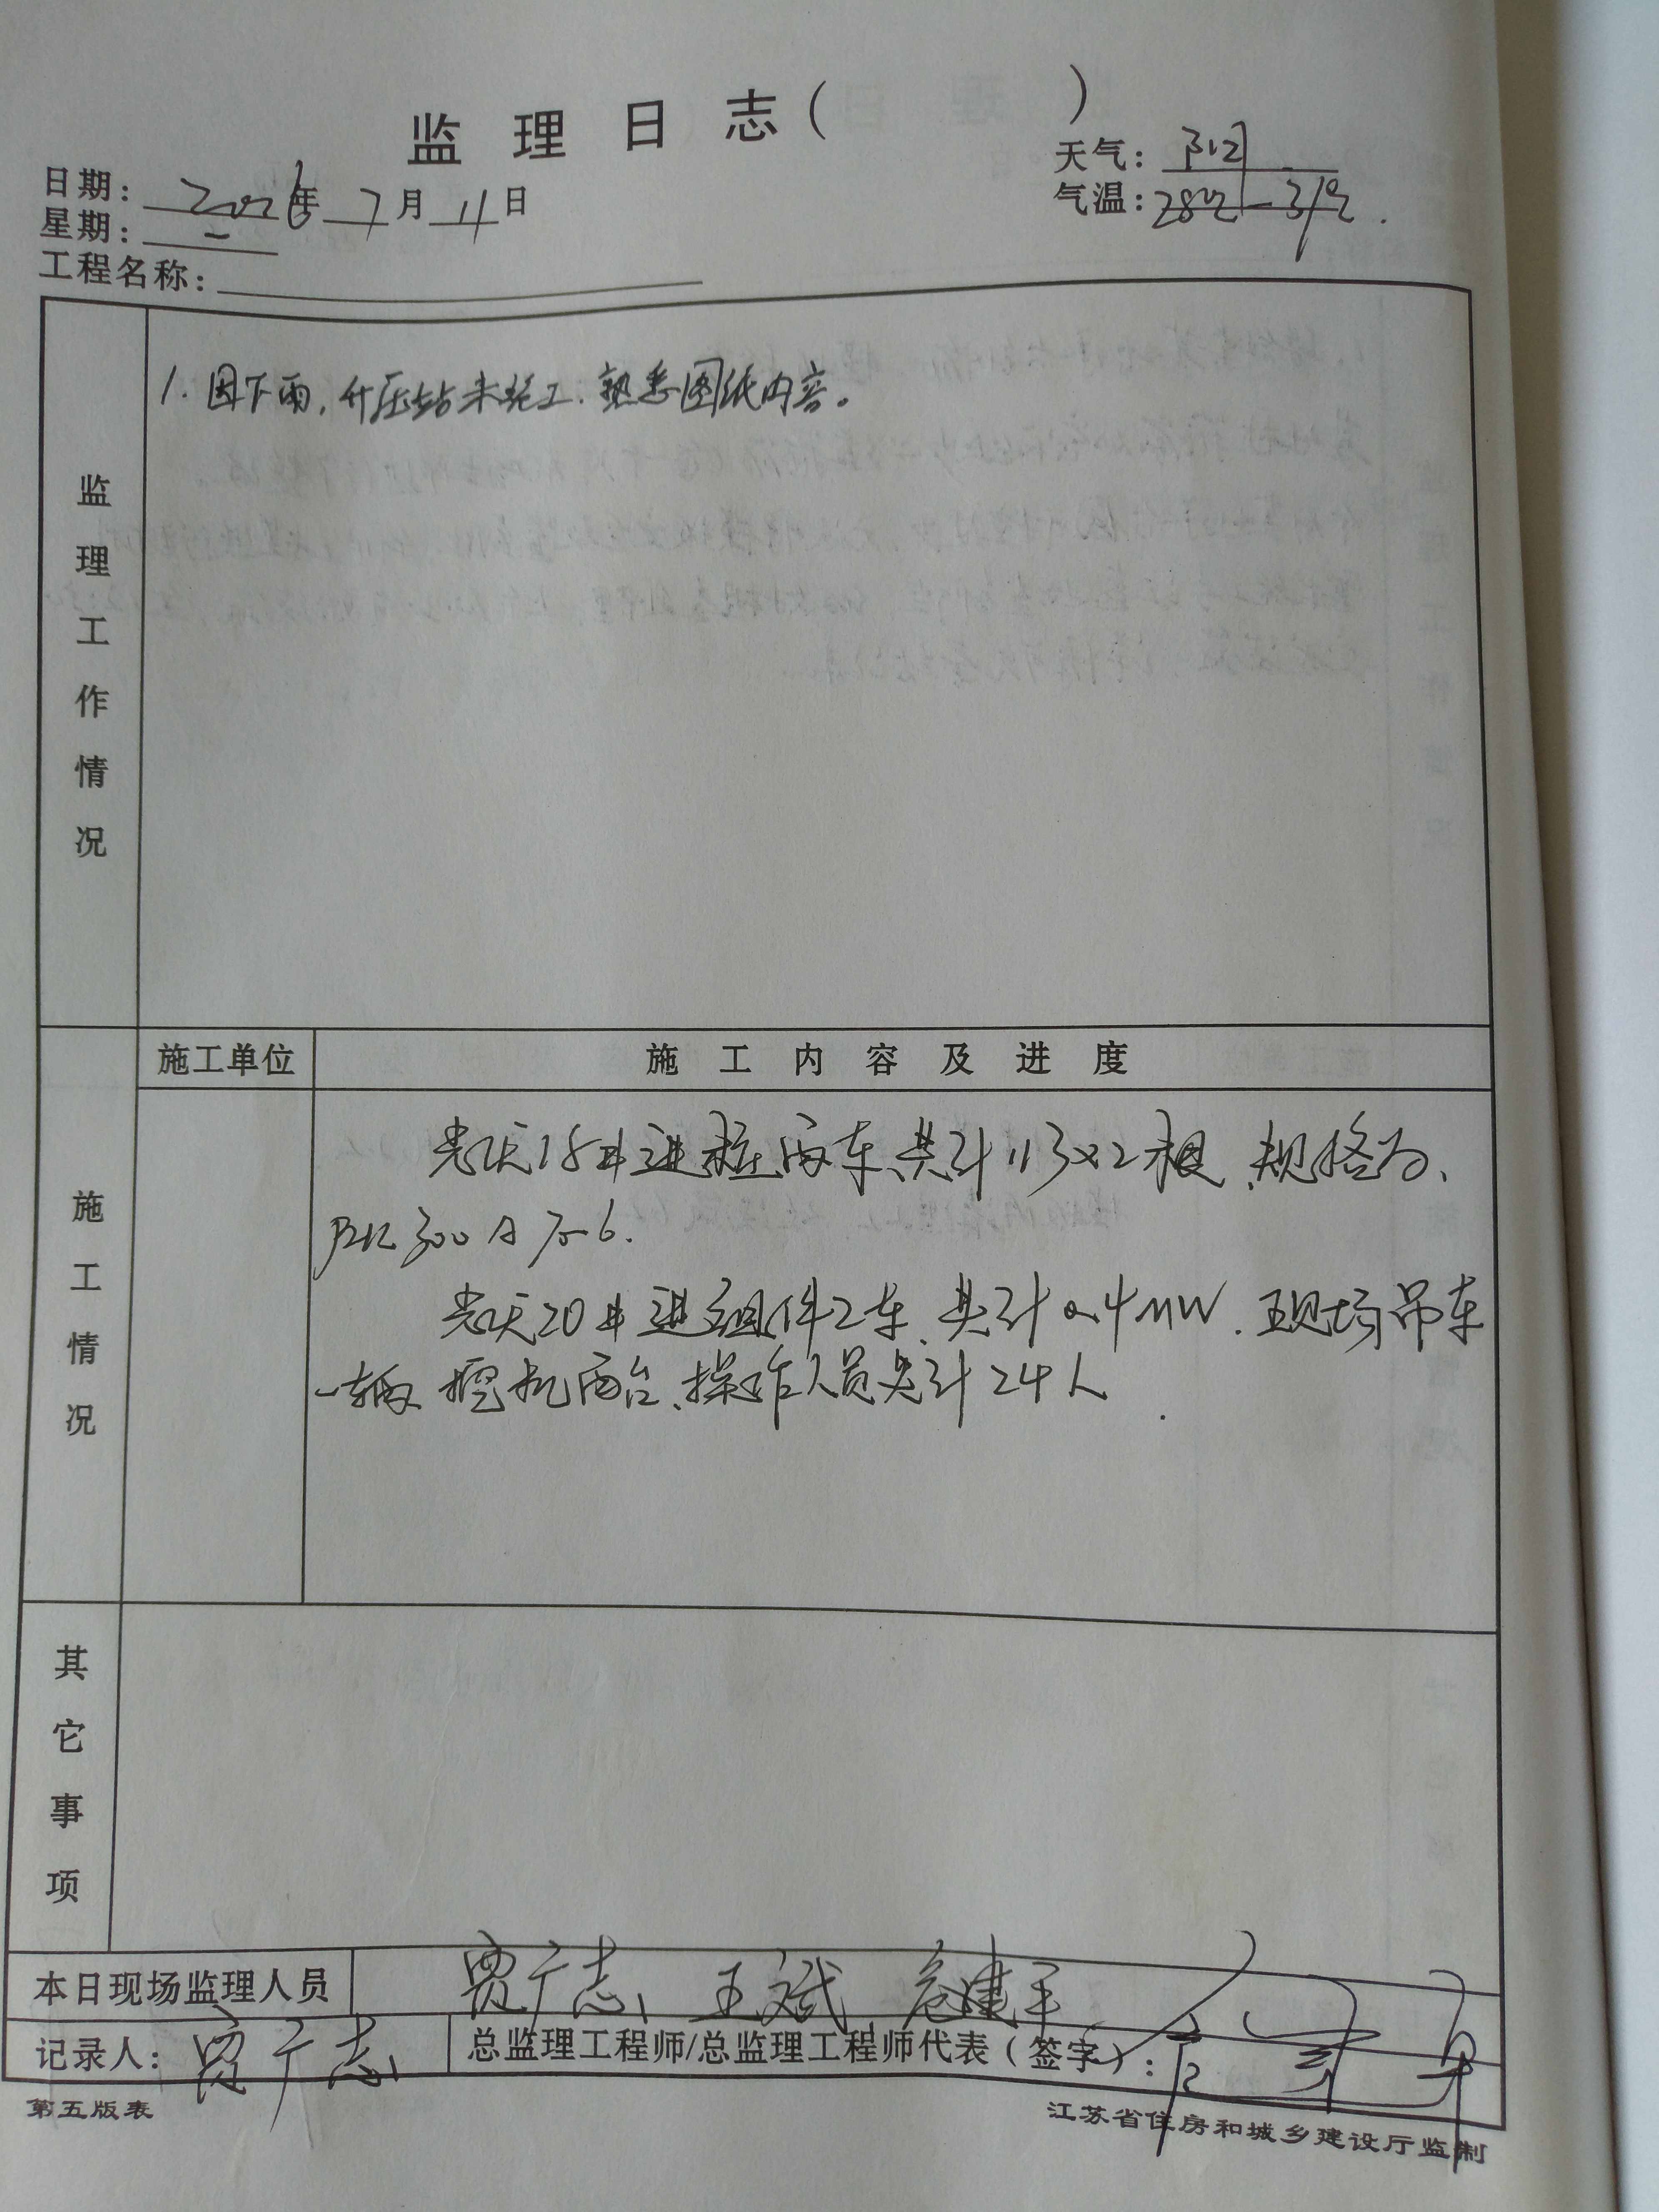 监理日志（ ）
日期： 2026年 7月 11日
天气：阴
星期： 一
气温：28℃—31℃.
工程名称：
监理工作情况
1. 因下雨, 升压站未施工. 熟悉图纸内容。
施工单位
施工内容及进度
施工情况
光伏18#进桩两车、共计113×2根、规格为、
300 A 6.
光伏20#进组件2车、共计0.4MW. 现场吊车
一辆 挖机两台、操作人员共计24人.
其它事项
本日现场监理人员
贾广志、王斌、建平
记录人：贾广志
总监理工程师/总监理工程师代表（签字）：
第五版表
江苏省住房和城乡建设厅监制